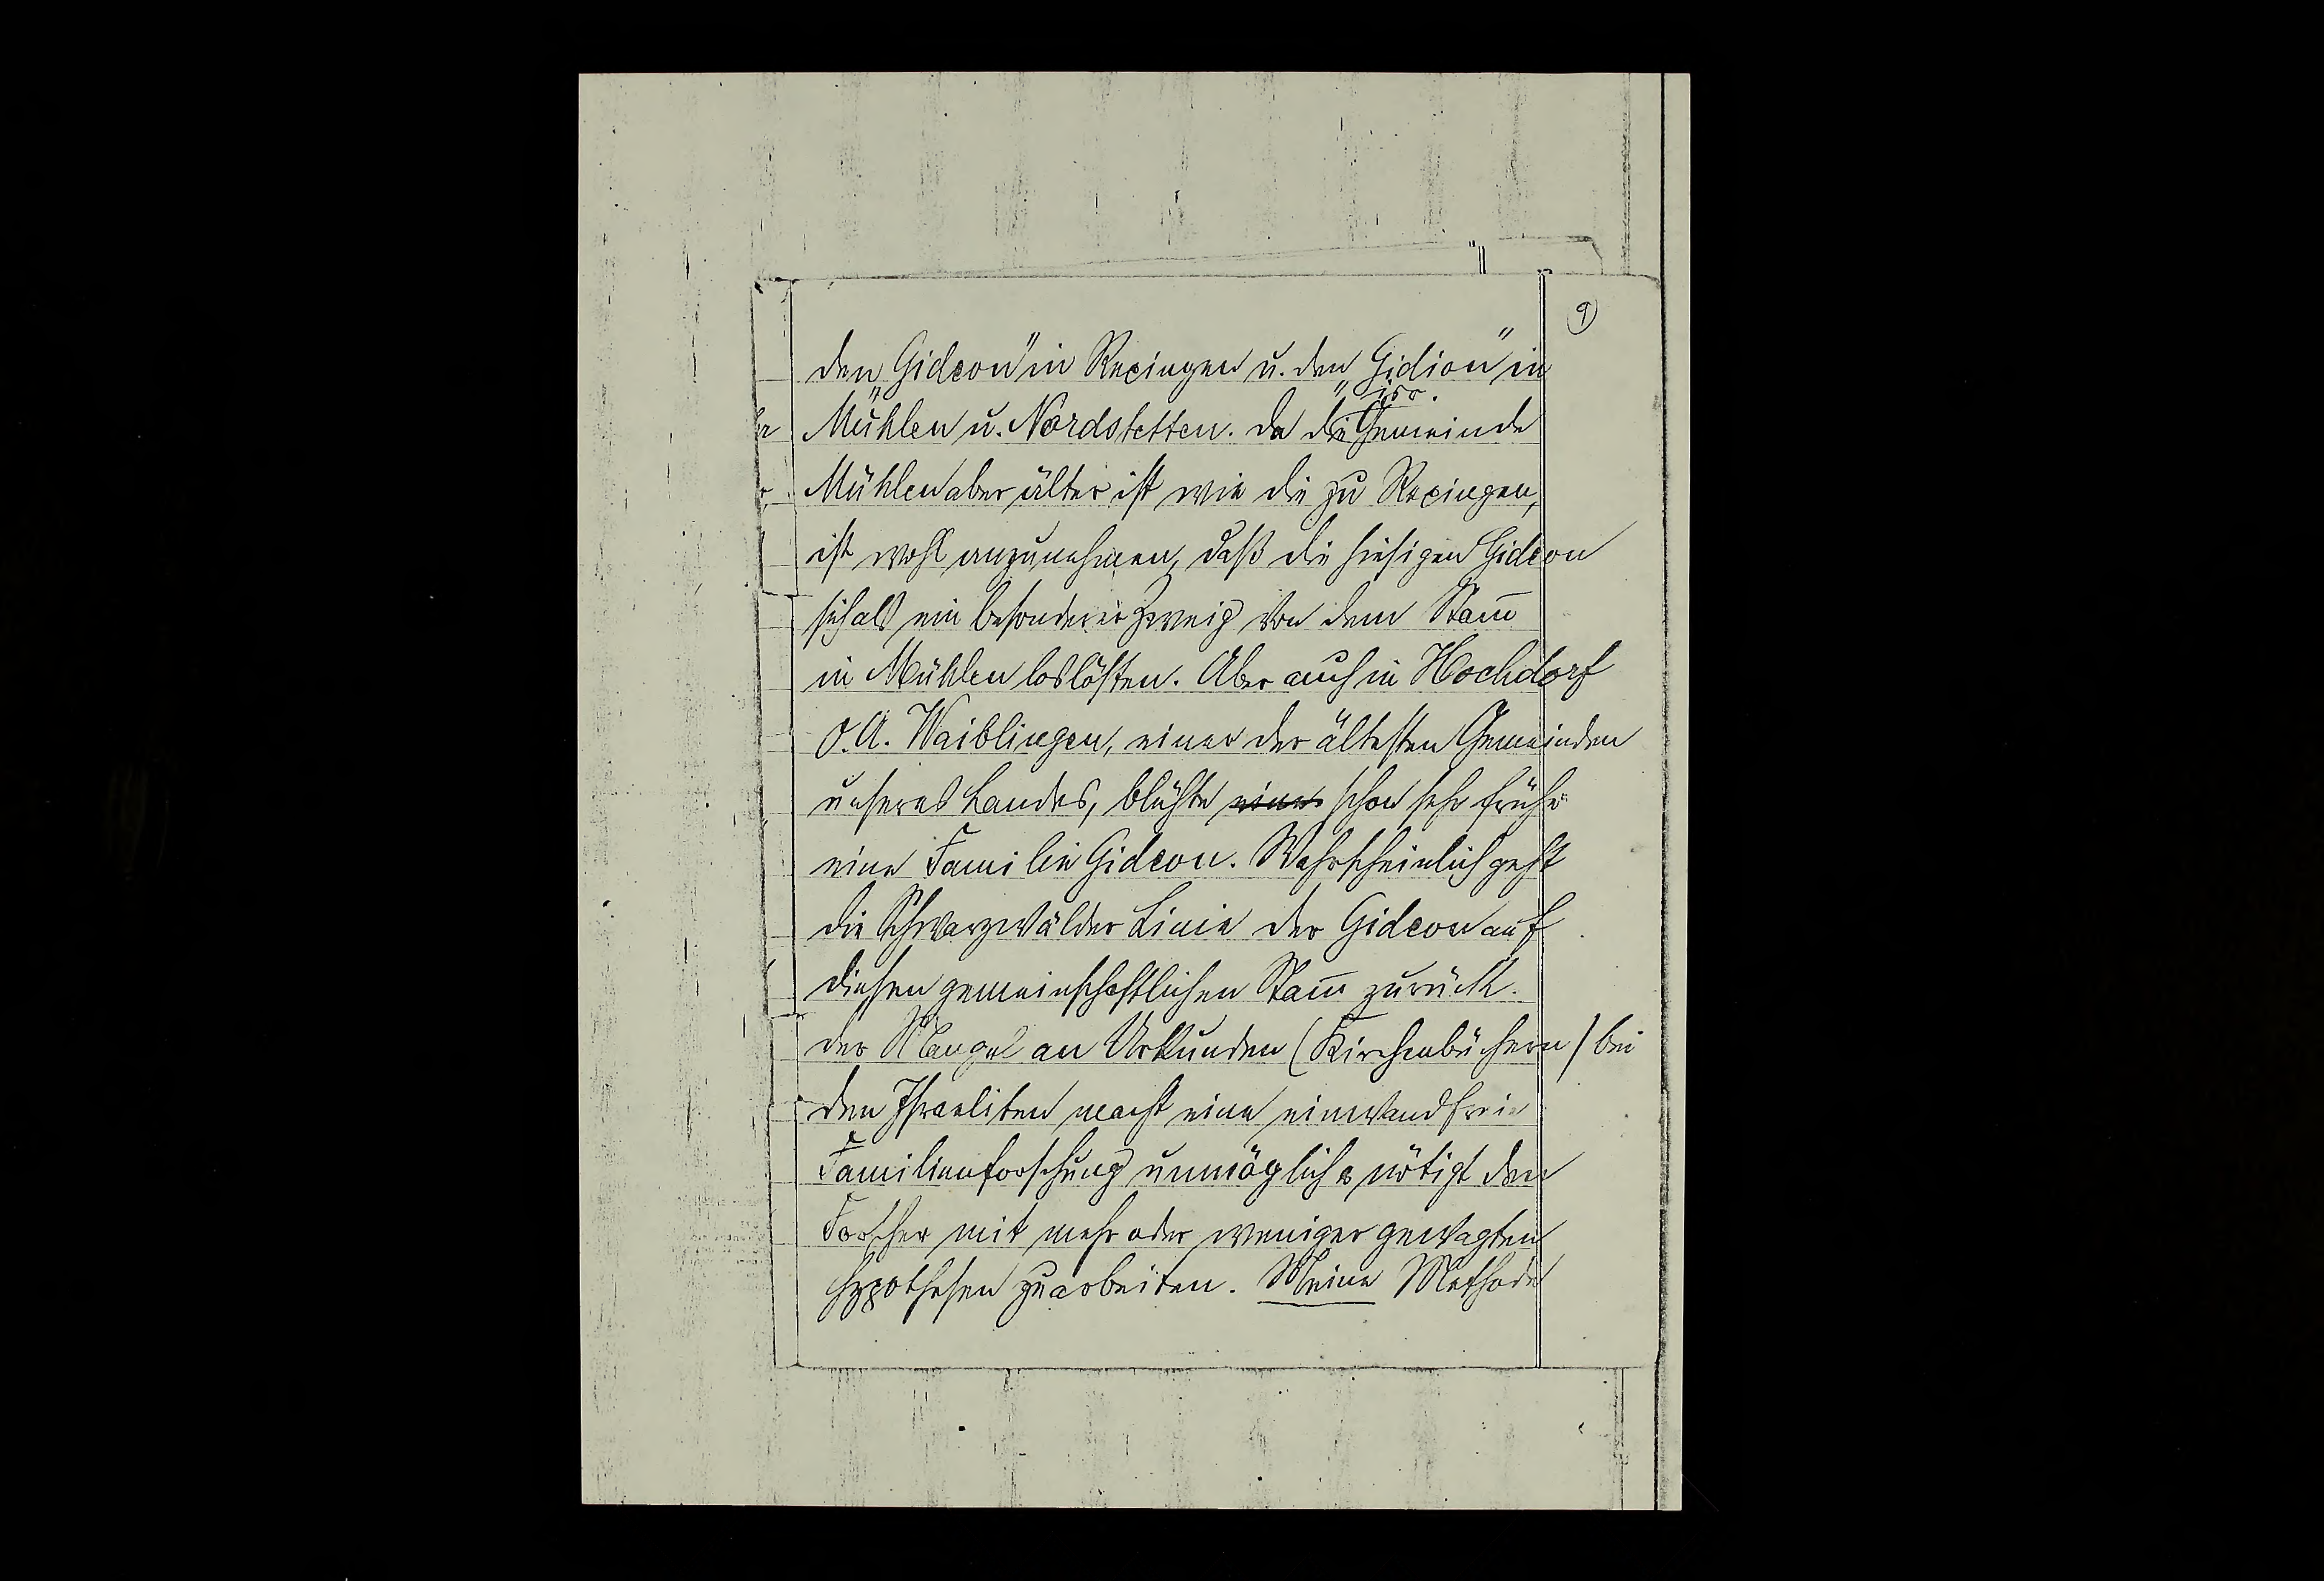 9)
den „Gideon" in Rexingen u. den „Gidion" in
isr.
Mühlen u. Nordstetten. Da die Gemeinde
Mühlen aber älter ist wie die zu Rexingen,
ist wohl anzunehmen, daß die hiesigen Gideon
sich als ein besonderer Zweig von dem Stam̅
in Mühlen loslösten. Aber auch in Hochdorf
O.A. Waiblingen, einer der ältesten Gemeinden
unseres Landes, blühte einer schon sehr frühe
eine Familie Gideon. Wahrscheinlich geht
die Schwarzwälder Linie der Gideon auf
diesen gemeinschaftlichen Stam̅ zurück.
Der Mangel an Urkunden (Kirchenbüchern) bei
den Israeliten macht eine einwandfreie
Familienforschung unmöglich & nötigt den
Forscher mit mehr oder weniger gewagten
Hypothesen zu arbeiten. Meine Methode